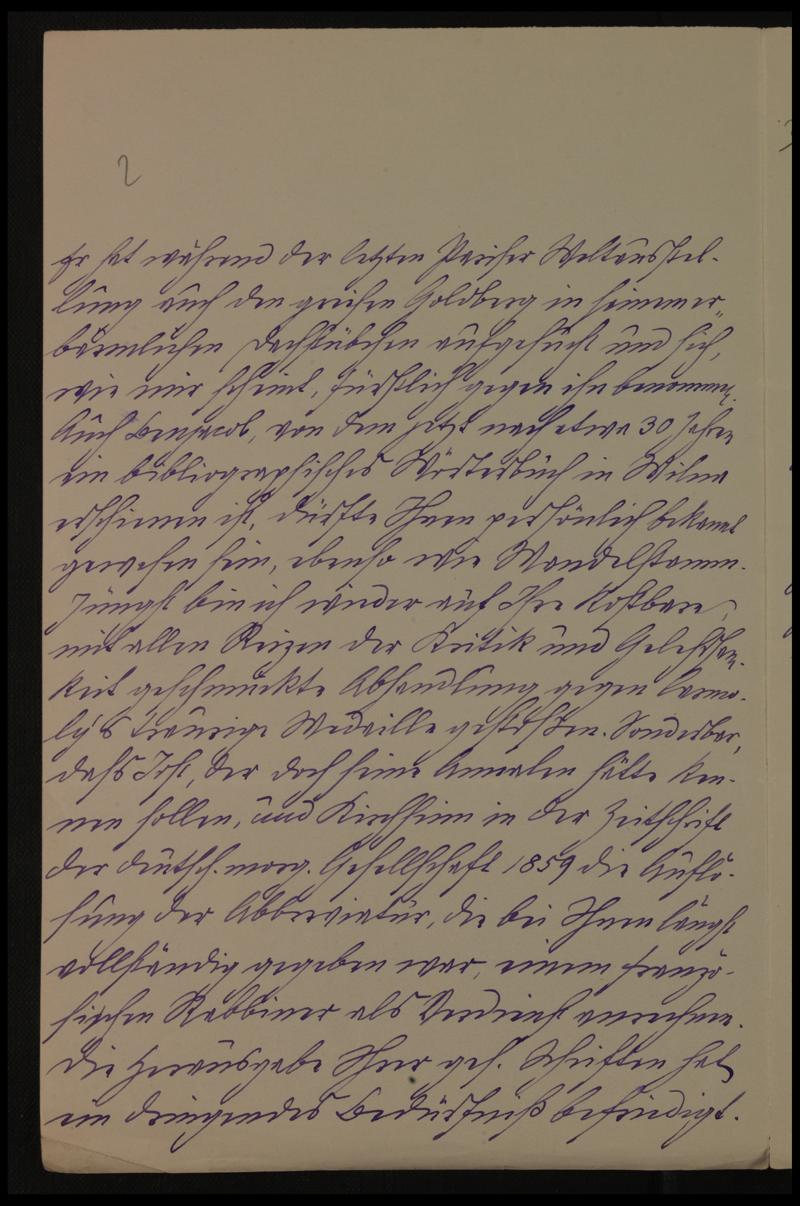 2
Er hat während der letzten Pariser Weltausstel-
lung auch den greisen Goldberg in seinem er-
bärmlichen Dachstübchen aufgesucht und sich,
wie mir scheint, fürstlich gegen ihn benommen.
Auch Benjacob, von dem jetzt nach etwa 30 Jahren
ein bibliographisches Wörterbuch in Wilna
erschienen ist, dürfte Ihnen persönlich bekannt
gewesen sein, ebenso wie Mandelstamm.
Jüngst bin ich wieder auf Ihre kostbare,
mit allen Reizen der Kritik und Gelehrsam-
keit geschmückte Abhandlung gegen Carmo-
ly's traurige Medaille gestoßen. Sonderbar,
dass Jost, der doch seine Annalen hätte ken-
nen sollen, und Kirchheim in der Zeitschrift
der deutsch. morg. Gesellschaft 1859 die Auflö-
sung der Abbreviatur, die bei Ihnen längst
vollständig gegeben war, einem franzö-
sischen Rabbiner als Verdienst anrechnen.
Die Herausgabe Ihrer ges. Schriften hat
ein dringendes Bedürfniß befriedigt.